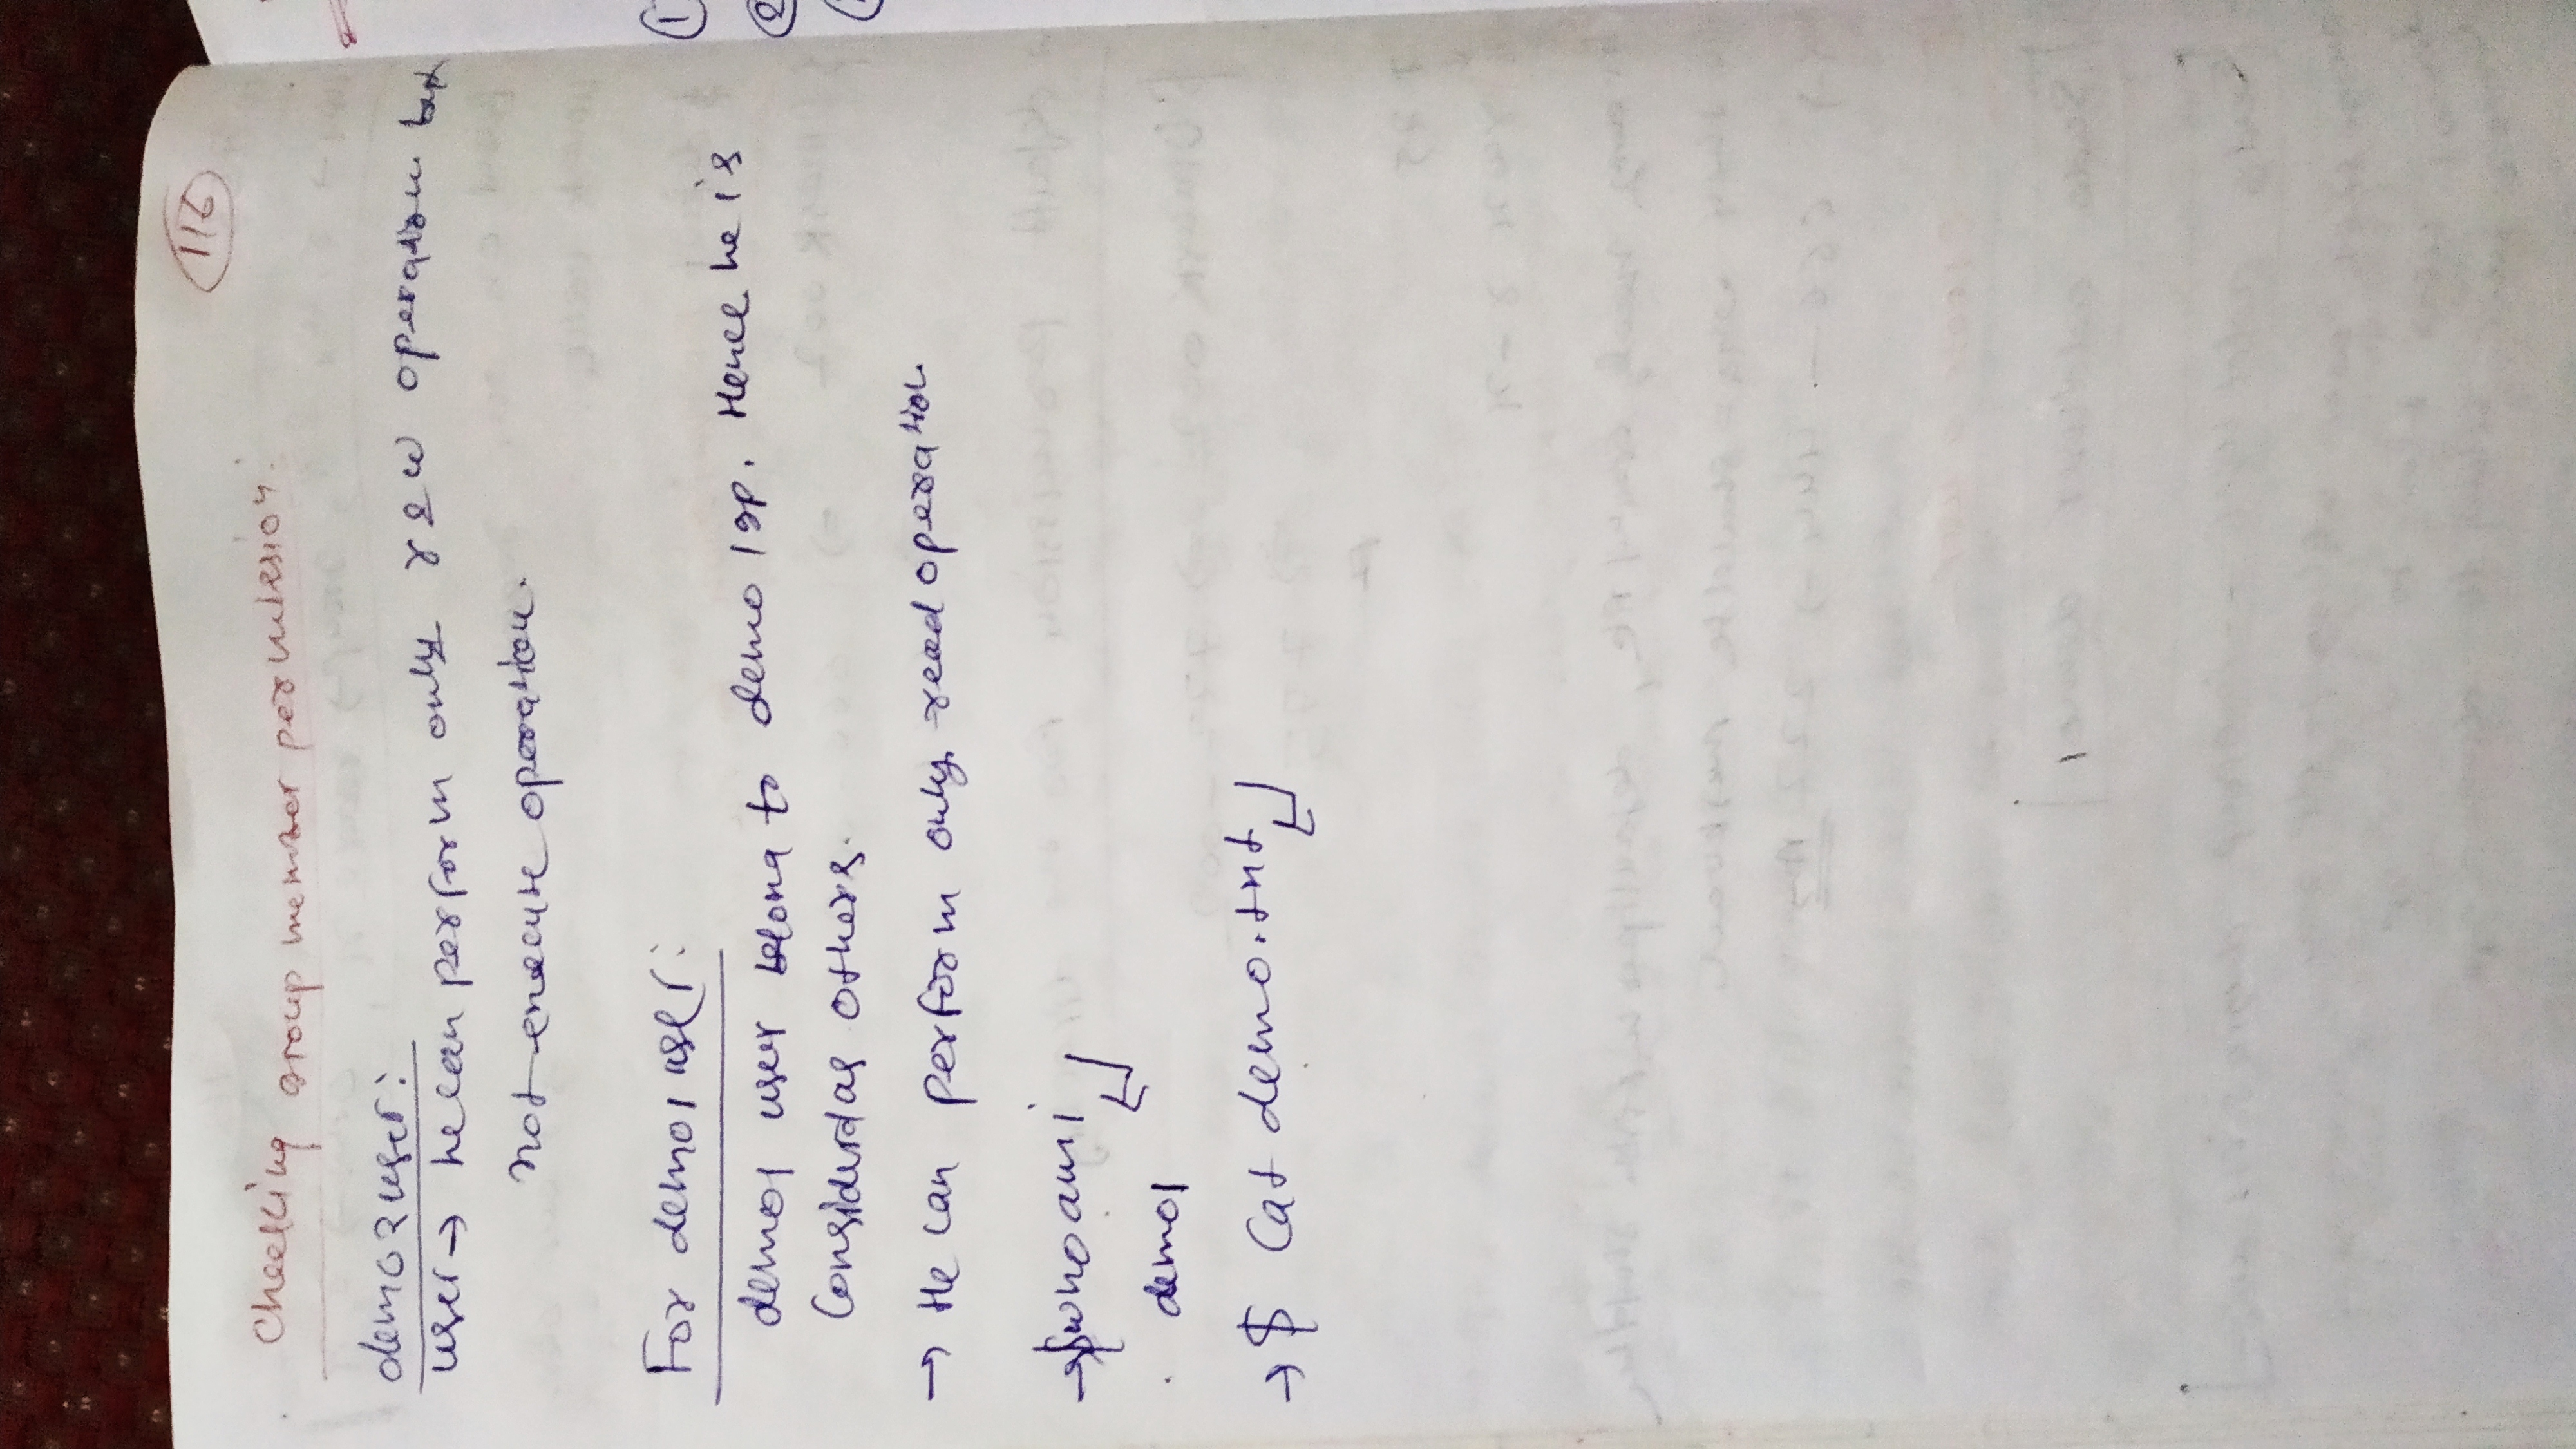 116
Checking group member permission:
demo2user:
user → he can perform only r & w operation but
not execute operation.
For demo1 user:
demo1 user belong to demo1gp. Hence he is
Considerd as others.
→ He can perform only read operation
→ $whoami ↵
demo1
→ $ Cat demo.txt ↵